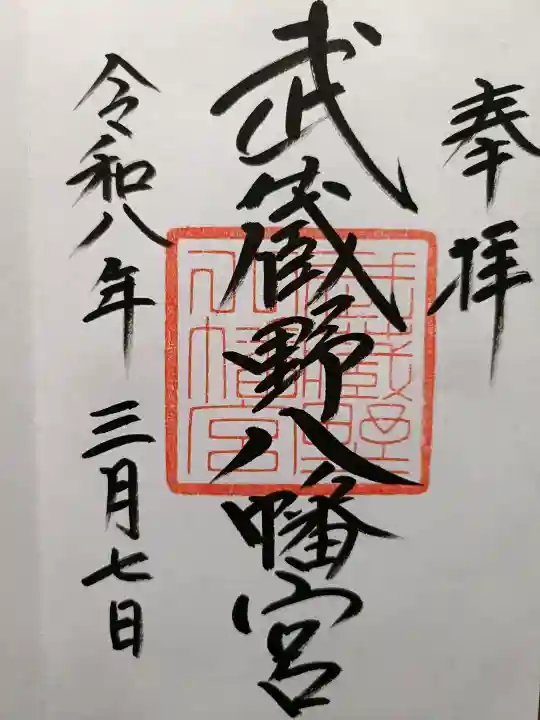 奉拝
武蔵野八幡宮
令和八年 三月七日
武蔵野八幡宮